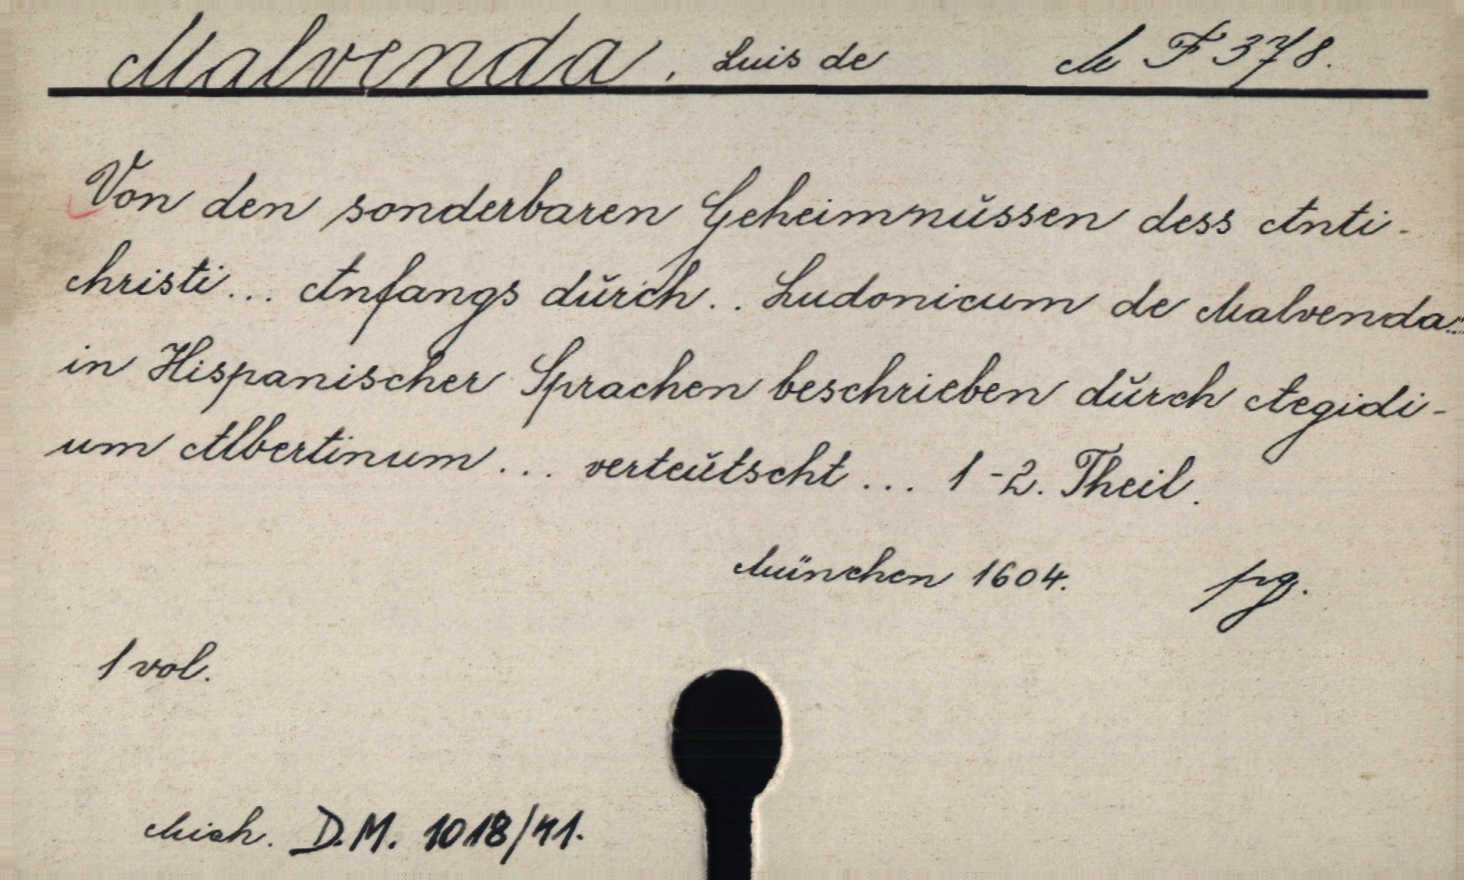 Malvenda, Luis de M F 378.
Von den sonderbaren Geheimnüssen dess Anti-
christi... Anfangs durch.. Ludonicum de Malvenda...
in Hispanischer Sprachen beschrieben durch Aegidi-
um Albertinum... verteutscht... 1-2. Theil.
München 1604. pg.
1 vol.
Mich. D.M. 1018/41.